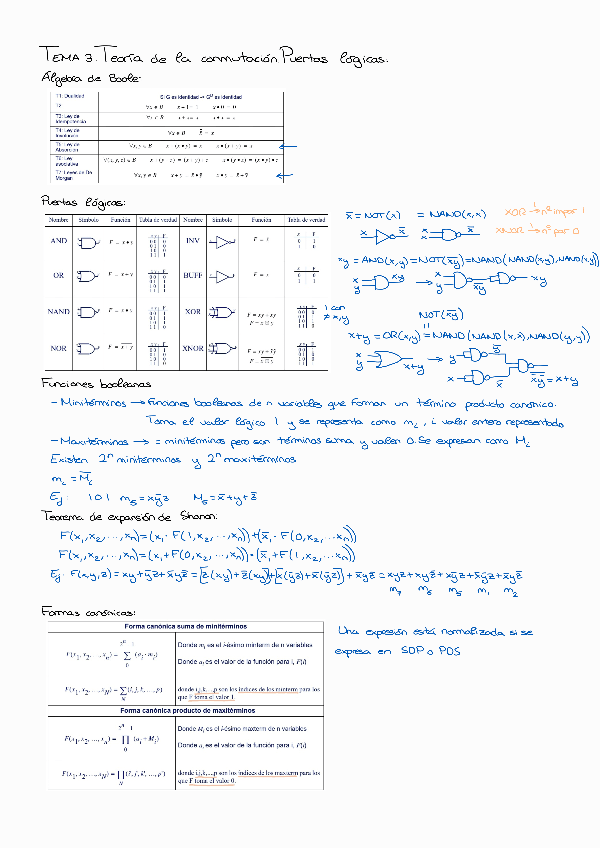 TEMA 3. Teoría de la conmutación. Puertas lógicas.
Álgebra de Boole:
T1: Dualidad Si G es identidad -> G^D es identidad
T3: Ley de Idempotencia
T4: Ley de Involución
T5: Ley de Absorción
T6: Ley asociativa
T7: Leyes de De Morgan
Puertas lógicas:
Nombre Símbolo Función Tabla de verdad Nombre Símbolo Función Tabla de verdad
AND INV
OR BUFF
NAND XOR
NOR XNOR
1 con ≠ x,y
x̅ = NOT(x) = NAND(x,x)
XOR → nº impar 1
XNOR → nº par 0
xy = AND(x,y) = NOT(x̅y̅) = NAND(NAND(x,y),NAND(x,y))
NOT(x̅y̅)
x+y = OR(x,y) = NAND(NAND(x,x),NAND(y,y))
Funciones booleanas
- Minitérminos → Funciones booleanas de n variables que forman un término producto canónico.
Toma el valor lógico 1 y se representa como mᵢ, i valor entero representado
- Maxitérminos → = minitérminos pero son términos suma y valen 0. Se expresan como Mᵢ
Existen 2ⁿ minitérminos y 2ⁿ maxitérminos
mᵢ = M̅ᵢ
Ej: 101 m₅ = xy̅z M₅ = x̅+y+z̅
Teorema de expansión de Shanon:
F(x₁,x₂,...,xₙ)=(x₁·F(1,x₂,...,xₙ))+(x̅₁·F(0,x₂,...,xₙ))
F(x₁,x₂,...,xₙ)=(x₁+F(0,x₂,...,xₙ))·(x̅₁+F(1,x₂,...,xₙ))
Ej: F(x,y,z)=xy+y̅z+x̅yz̅=[z(xy)+z̅(xy)]+[x(y̅z)+x̅(y̅z)]+x̅yz̅=xyz+xyz̅+xy̅z+x̅y̅z+x̅yz̅
m₇ m₆ m₅ m₁ m₂
Formas canónicas:
Forma canónica suma de minitérminos
Donde mᵢ es el i-ésimo minterm de n variables
Donde aᵢ es el valor de la función para i, F(i)
donde i,j,k,...,p son los índices de los minterm para los que F toma el valor 1.
Forma canónica producto de maxitérminos
Donde Mᵢ es el i-ésimo maxterm de n variables
Donde aᵢ es el valor de la función para i, F(i)
donde i,j,k,...,p son los índices de los maxterm para los que F toma el valor 0.
Una expresión está normalizada si se
expresa en SOP o POS